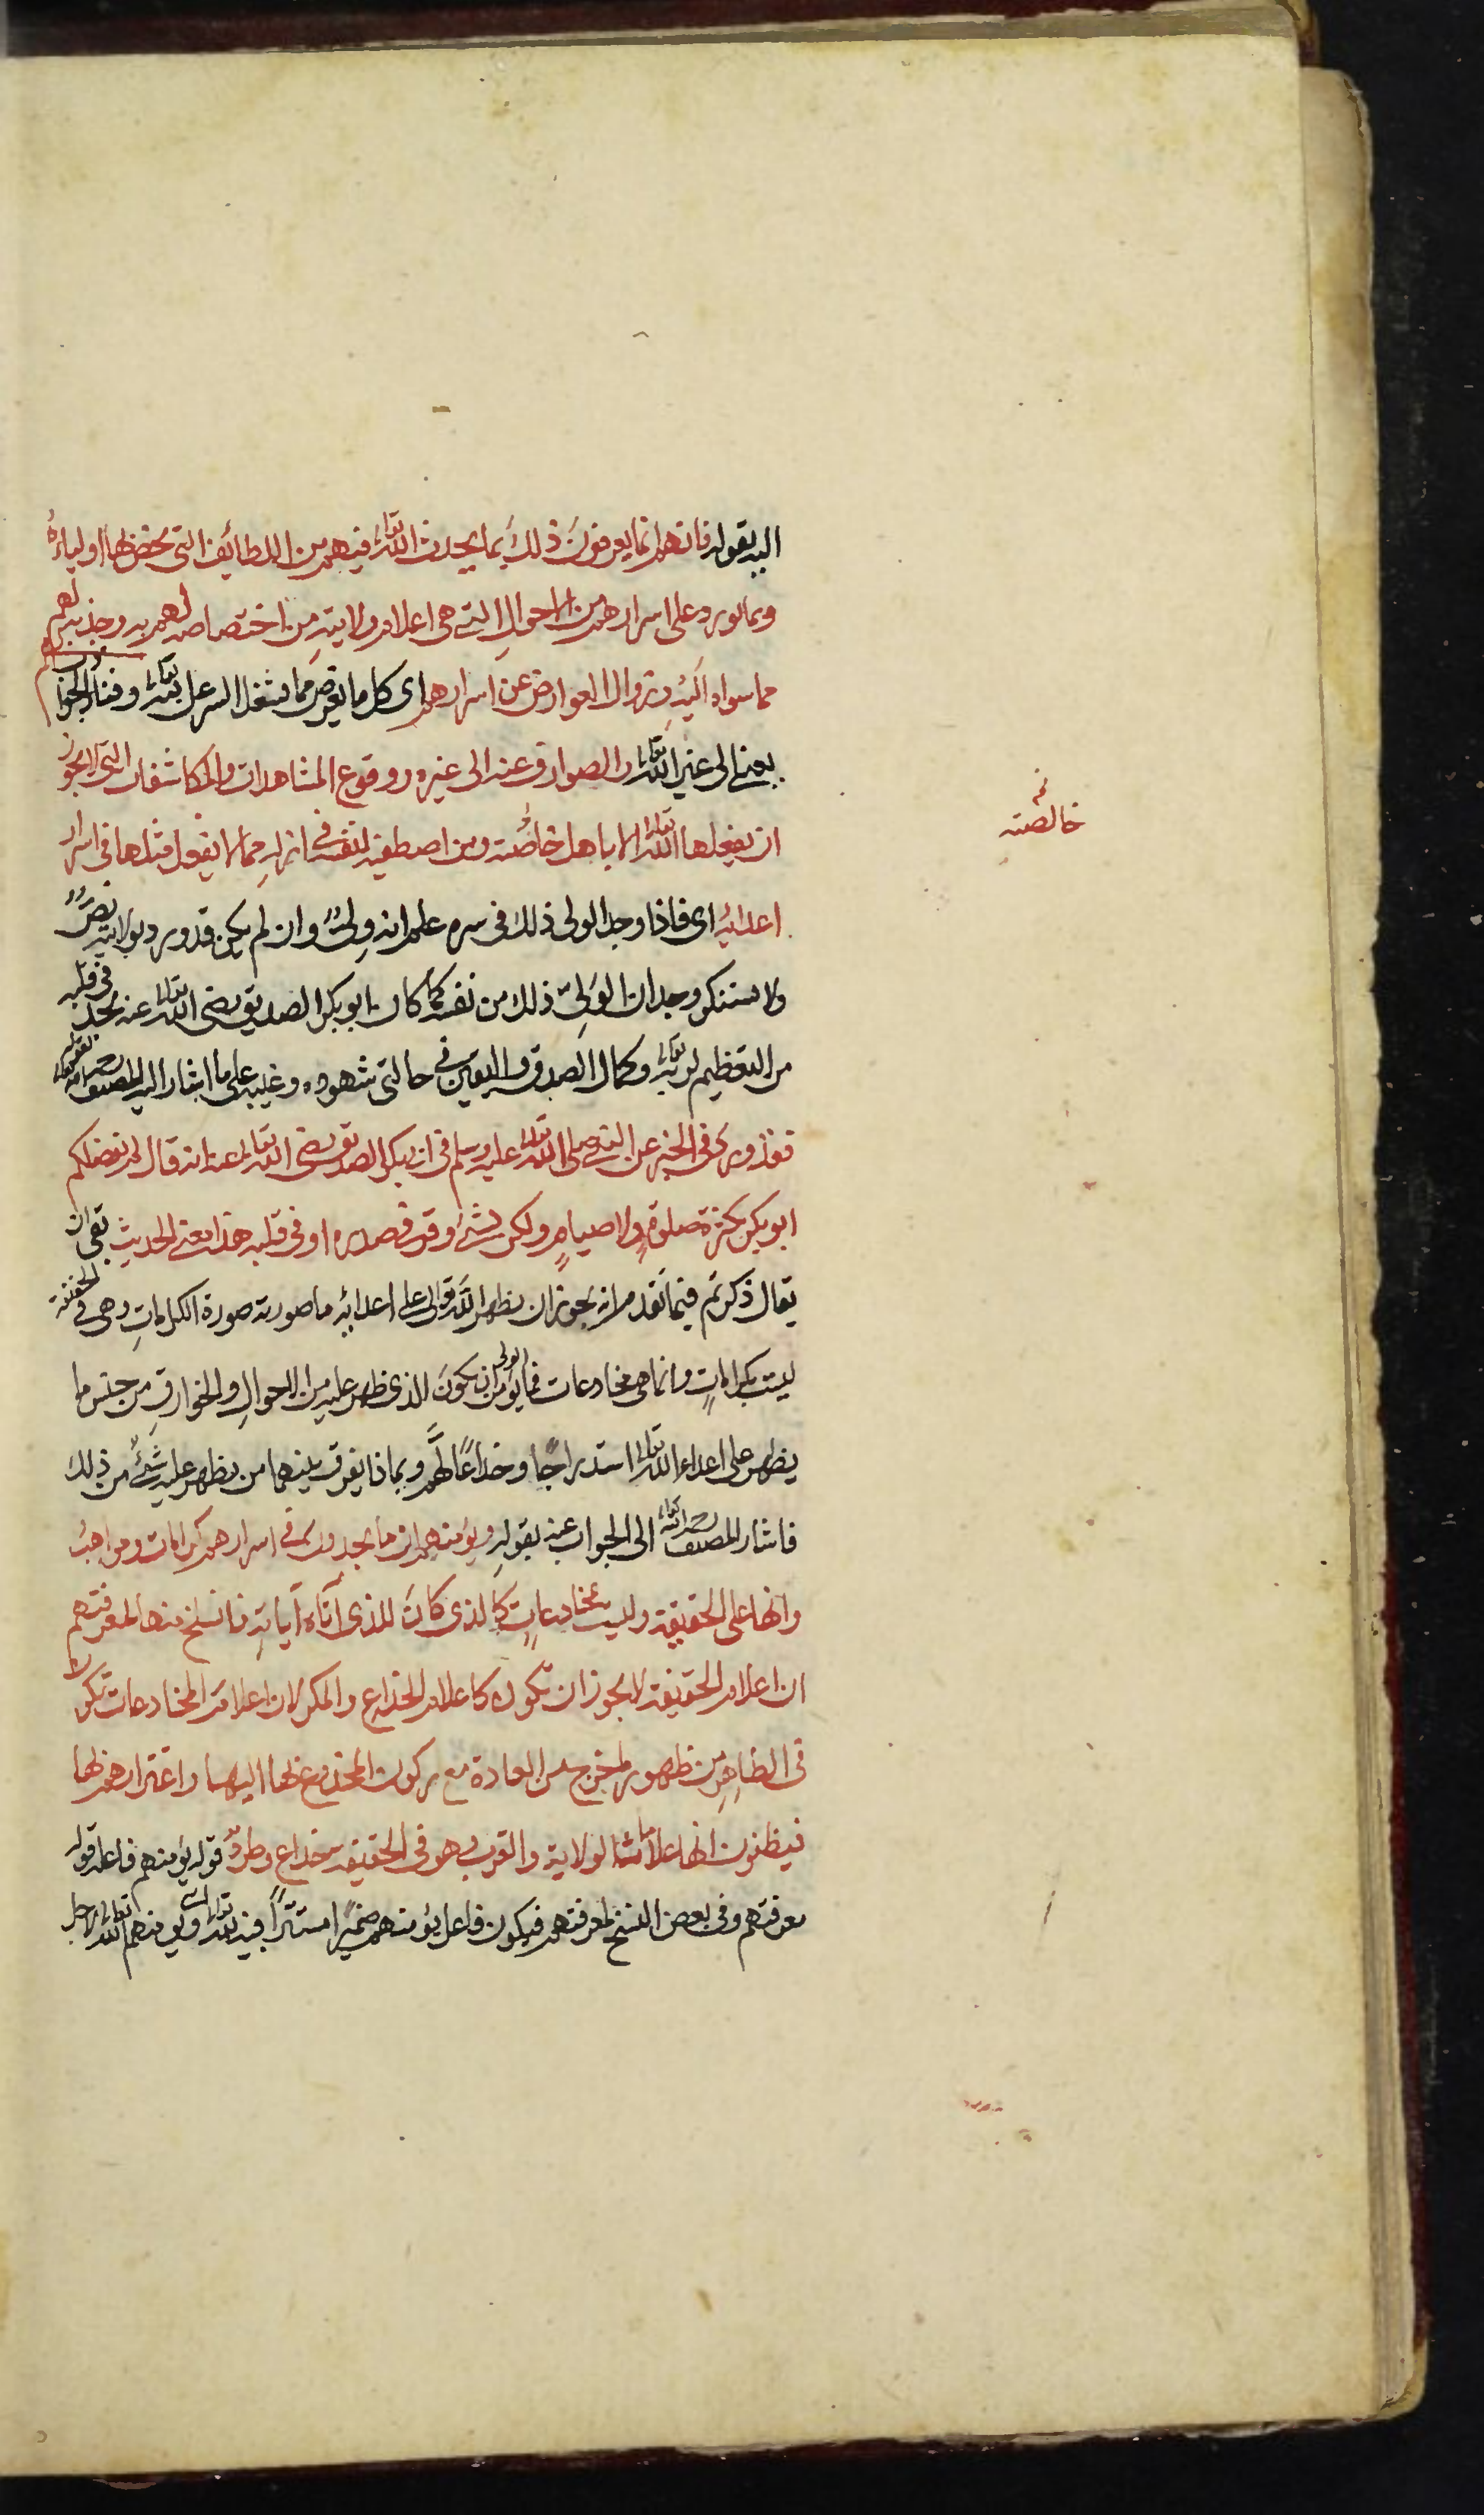 اليه بقوله فانهم انما يعرفون ذلك بما يحدث الله تعالى فيهم من اللطائف التي يخص بها اولياءه
وبما يورد على اسرارهم من الاحوال التي هي اعلام ولايته من اختصاصه لهم به وجذبه لهم
مما سواه اليه وزوال العوارض عن اسرارهم اى كل ما يعرض مما يشغل السر عن الله تعالى وفناء الحوادث لهم
يعني الى غير الله تعالى والصوارف عنه الى غيره ووقوع المشاهدات والمكاشفات التي لا يجوز
ان يفعلها الله تعالى الا باهل خاصته ومن اصطفيه لنفسه في ازله مما لا يفعل مثلها في اسرار
اعدائه اى فاذا وجد الولى ذلك في سره علم انه ولى وان لم يكن قد ورد بولايته نص
ولا يستنكر وجدان الولى ذلك من نفسه كما كان ابو بكر الصديق رضى الله تعالى عنه يجد في قلبه
من التعظيم لله تعالى وكمال الصدق واليقين في حالتى شهوده وغيبه على ما اشار اليه المصنف رحمه الله بقوله
فقد ورد في الخبر عن النبي صلى الله تعالى عليه وسلم في ابى بكر الصديق رضى الله تعالى عنه انه قال لم يفضلكم
ابو بكر بكثرة صلوة ولا صيام ولكن بشئ وقر في صدره او في قلبه هذا معنى الحديث بقى ان
يقال ذكرتم فيما تقدم انه يجوز ان يظهر الله تعالى على اعدائه ما صورته صورة الكرامات وهي في الحقيقة
ليست بكرامات وانما هي مخادعات فما يؤمن الولى ان يكون الذى ظهر عليه من الاحوال والخوارق من جنس ما
يظهر على اعداء الله تعالى استدراجا وخداعا لهم وبماذا يفرق بينهما من يظهر عليه شئ من ذلك
فاشار المصنف رحمه الله تعالى الى الجواب عنه بقوله ويؤمنهم ان ما يجدون في اسرارهم كرامات ومواهب
وانها على الحقيقة وليست بمخادعات كالذى كان للذى آتاه آياته فانسلخ منها لمعرفتهم
ان اعلام الحقيقة لا يجوز ان تكون كاعلام الخداع والمكر لان اعلام المخادعات تكون
في الظاهر من ظهور ما خرج عن العادة مع ركون المخدوع بها اليها واغترارهم بها
فيظنون انها علامات الولاية والقرب وهو في الحقيقة خداع وطرد قوله يؤمنهم فاعله قوله
معرفتهم وفي بعض النسخ لمعرفتهم فيكون فاعل يؤمنهم ضميرا مستترا فيه لله تعالى اى ويؤمنهم الله تعالى لاجل
نخ
خالصته